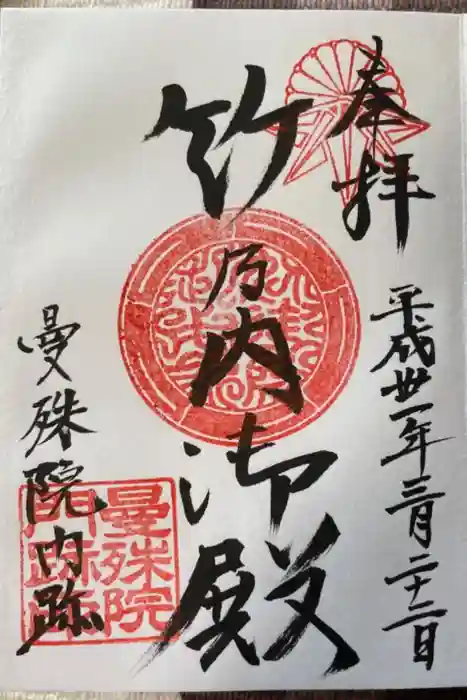 奉拝
平成丗一年三月二十二日
竹乃内御殿
曼殊院門跡
曼殊院
門跡印